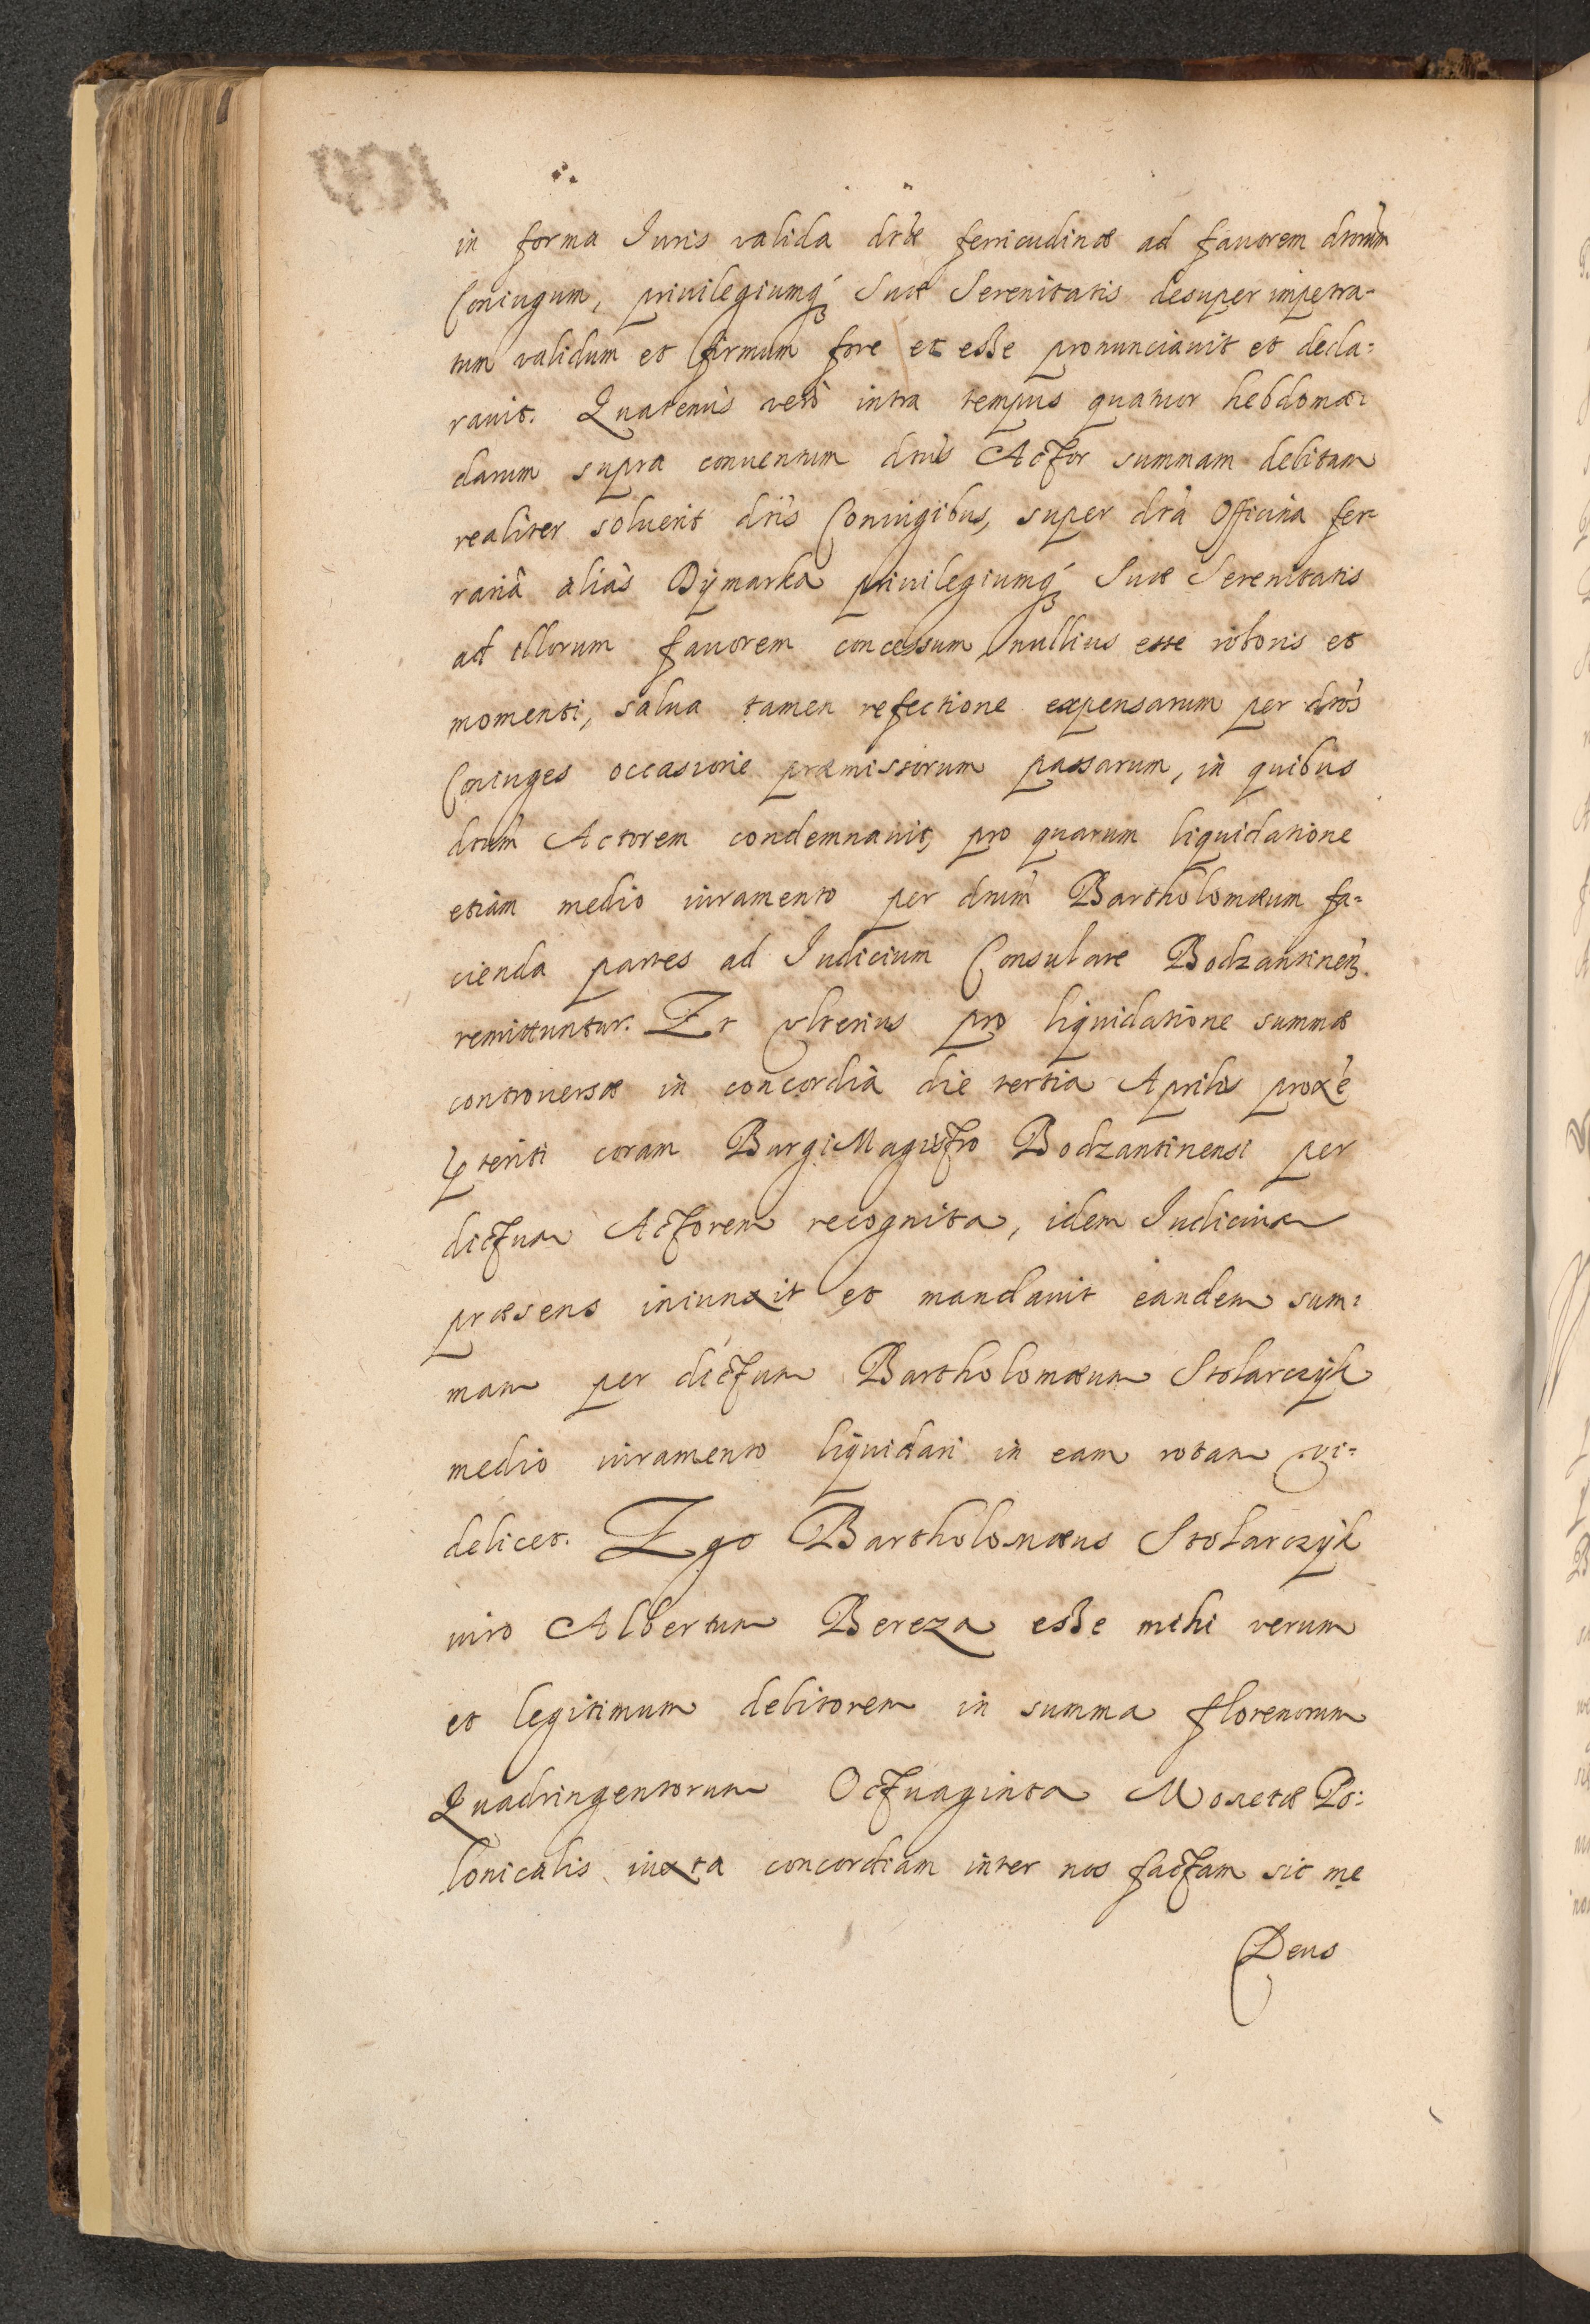 in forma Iuris valida dtæ ferricudinæ ad fauorem dtorum
Coniugum, priuilegiumq́ꝫ Suæ Serenitatis desuper impetra-
tum validum et firmum fore et esse pronunciauit et decla=
rauit. Quatenùs verò intra tempus quatuor hebdoma=
darum supra conuentum dtus Actor summam debitam
realiter soluerit dtis Coniugibus, super dta Officina fer-
rariâ aliàs Dÿmarka priuilegiumq́ꝫ Suæ Serenitatis
ad illorum fauorem concessum nullius esse roboris et
momenti, salua tamen refectione expensarum per dtos
Coniuges occasione præmissorum passarum, in quibus
dtum Actorem condemnauit, pro quarum liquidatione
etiam medio iuramento per dtum Bartholomæum fa=
cienda partes ad Iudicium Consulare Bodzantinen.
remittuntur. Et vlterius pro liquidatione summæ
controuersæ in concordia die tertia Aprilis proxe
pteriti coram BurgiMagistro Bodzantinensi per
dictum Actorem recognita, idem Iudicium
præsens iniunxit et mandauit eandem sum=
mam per dictum Bartholomæum Stolarczÿk
medio iuramento liquidari in eam rotam vi=
delicet. Ego Bartholomæus Stolarczÿk
iuro Albertum Bereza esse mihi verum
et legitimum debitorem in summa florenorum
Quadringentorum Octuaginta Monetæ Po=
lonicalis iuxta concordiam inter nos factam sic me
Deus